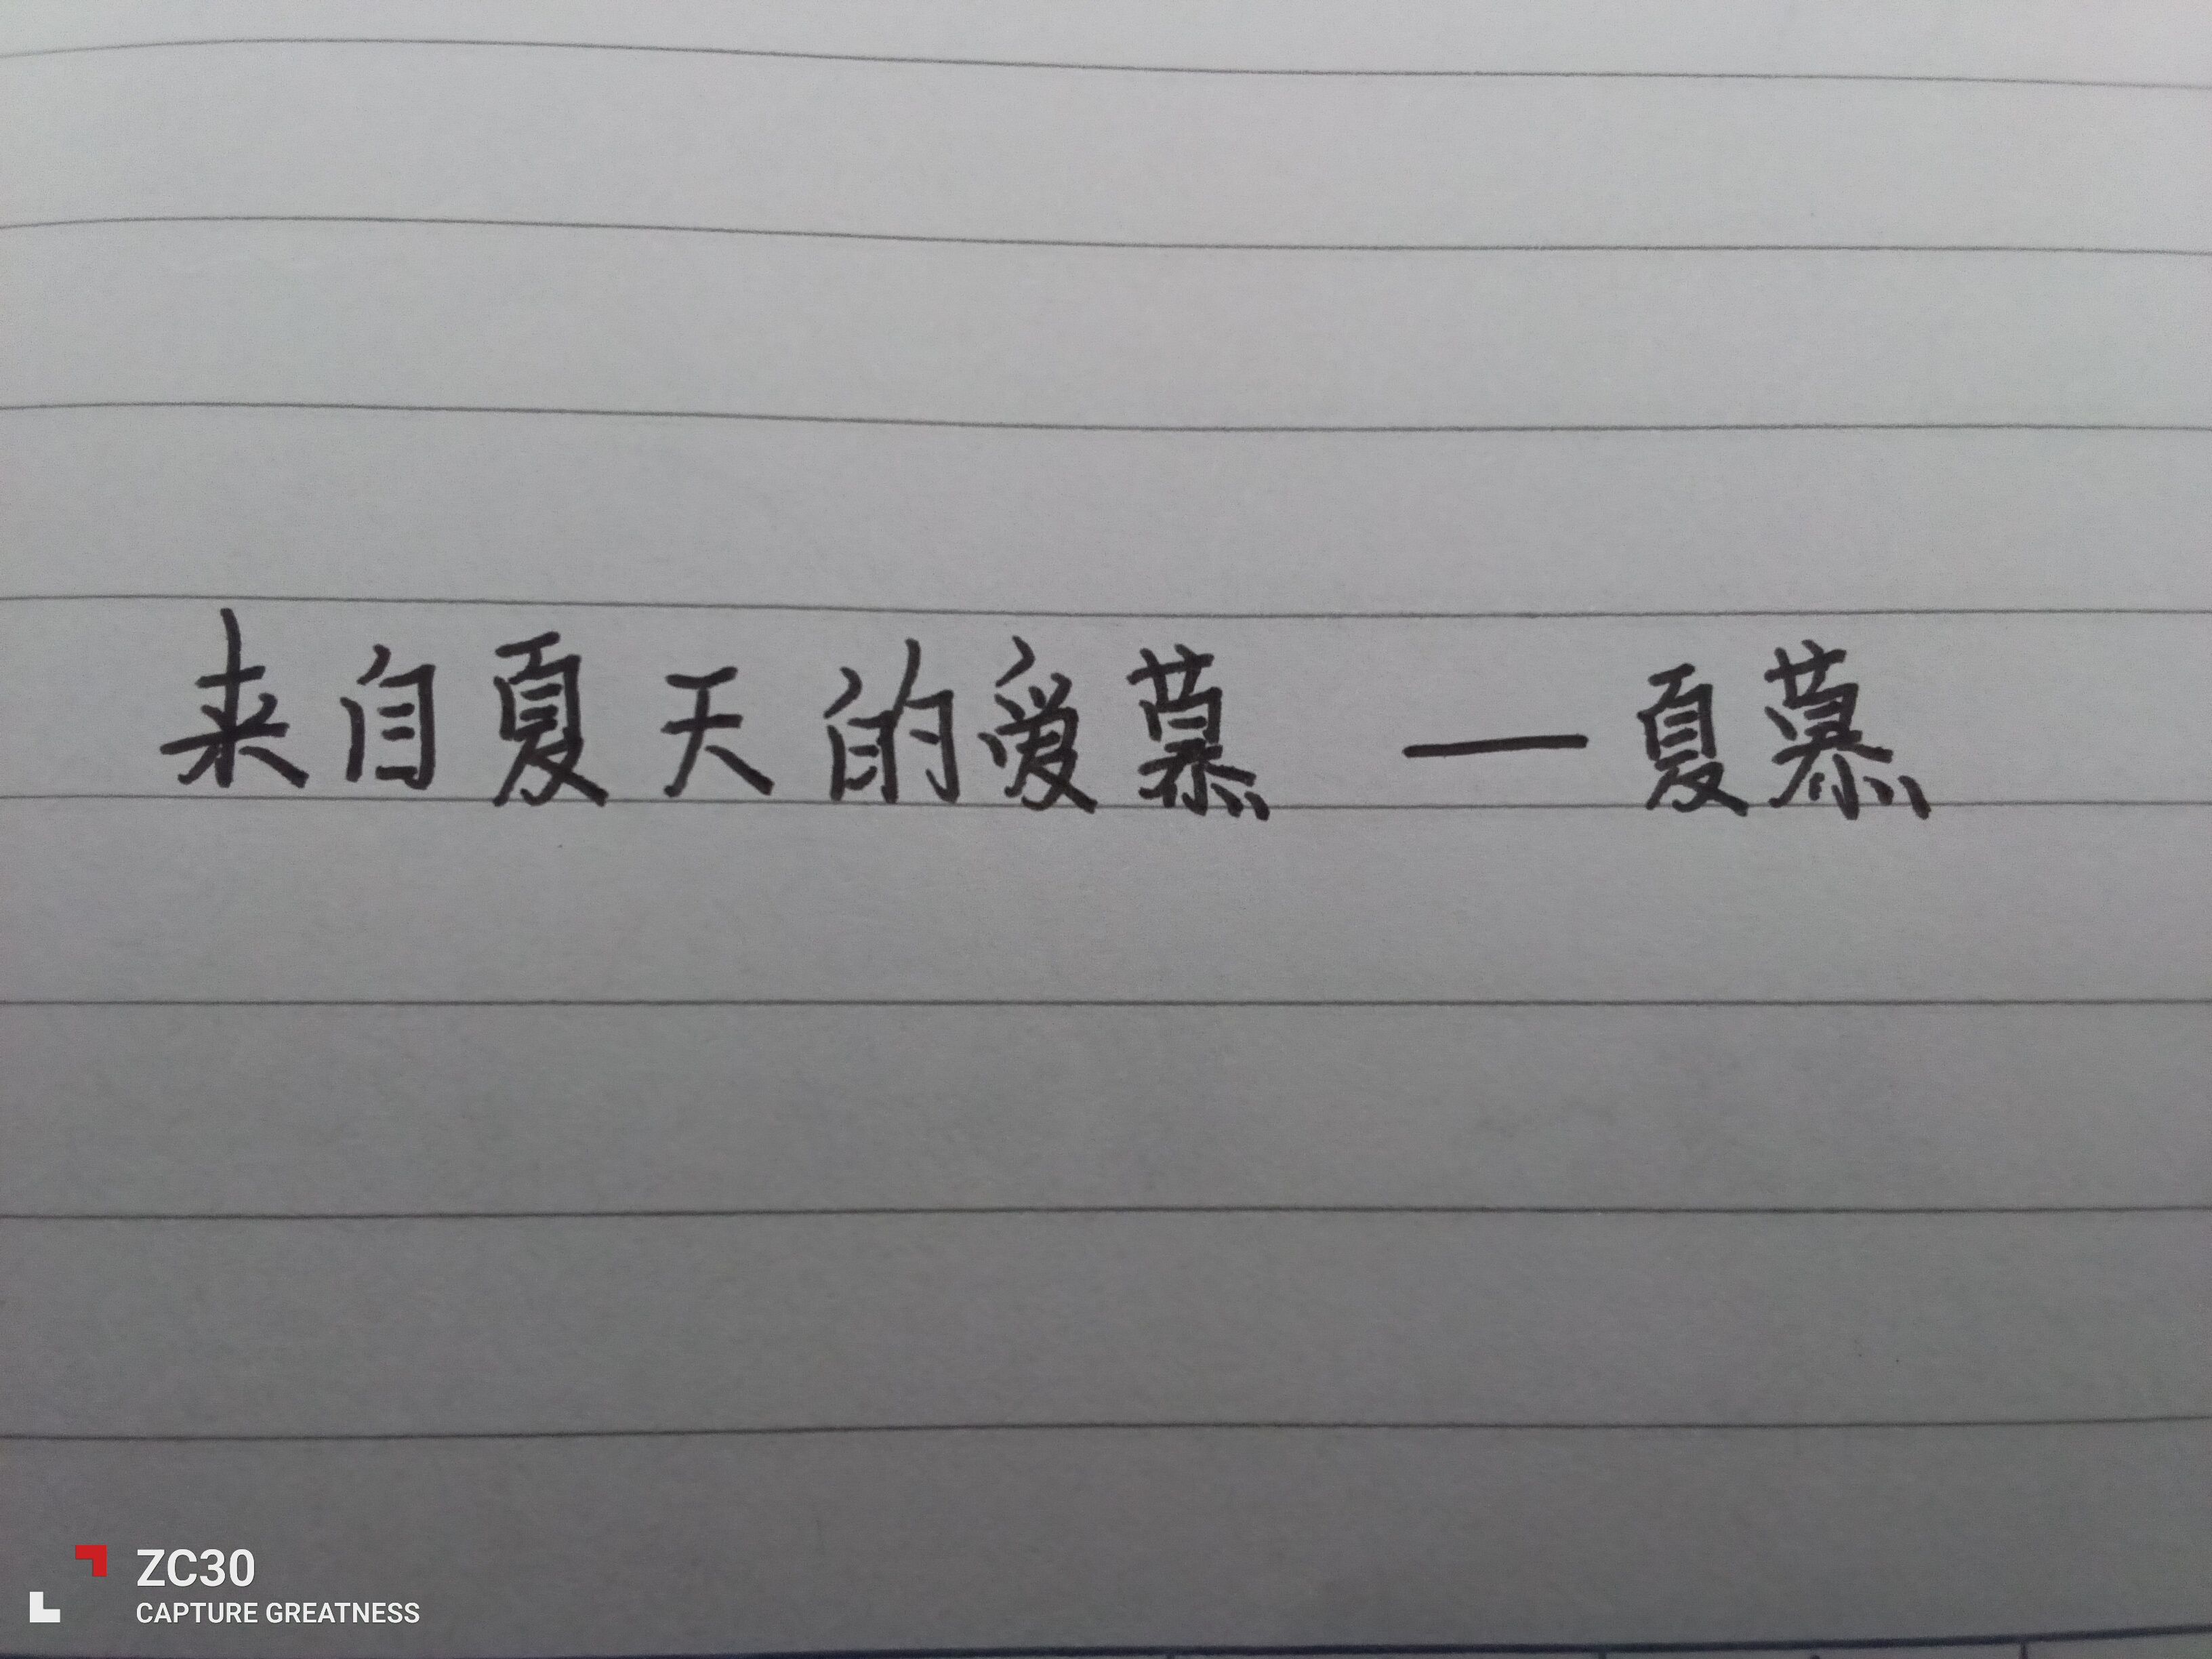 来自夏天的爱慕 —夏慕
ZC30
CAPTURE GREATNESS